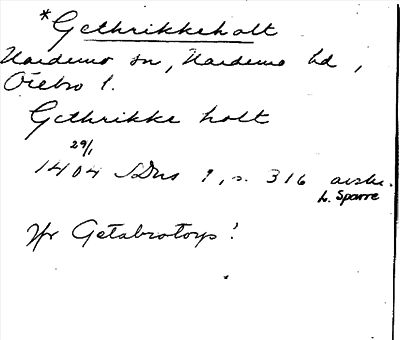 *Gethrikkeholt
Hardemo sn, Hardemo hd,
Örebro l.
Gethrikke holt
29/1
1404 SDns 1, s. 316 avskr.
L. Sparre
Jfr Getabrotorp!